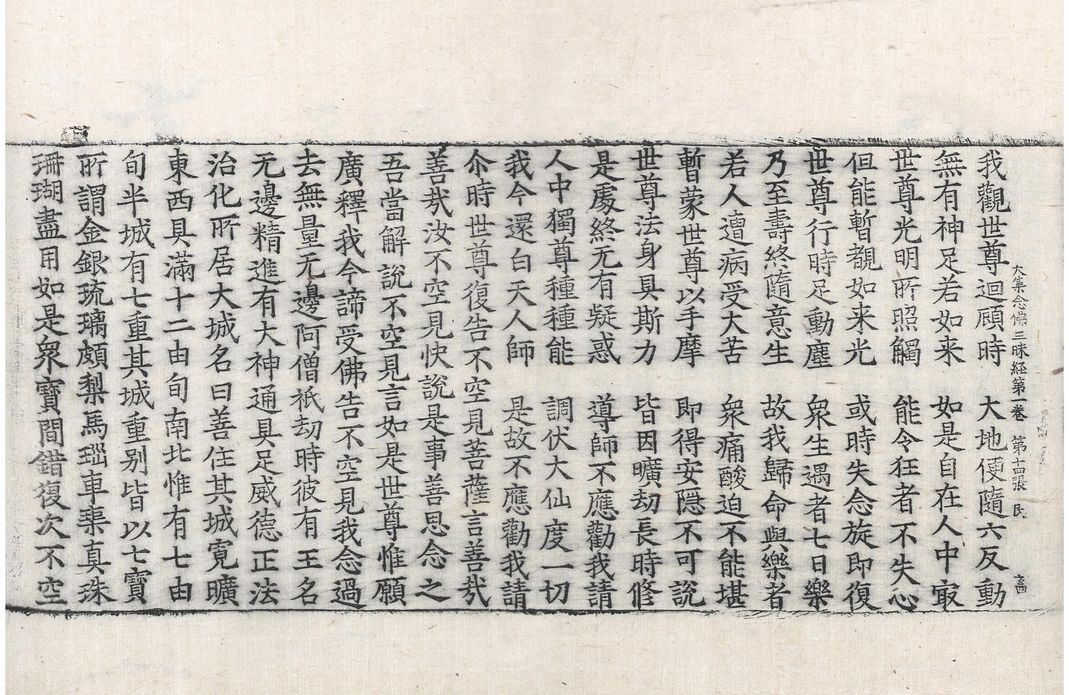 大集念佛三昧経第一卷 第十四張 民
我觀世尊迴顧時 大地便隨六反動
無有神足若如来 如是自在人中㝡
世尊光明所照觸 能令狂者不失心
但能暫覩如来光 或時失念旋即復
世尊行時足動塵 衆生遇者七日樂
乃至壽終隨意生 故我歸命與樂者
若人遭病受大苦 衆痛酸迫不能堪
暫蒙世尊以手摩 即得安隠不可說
世尊法身具斯力 皆因曠劫長時修
是處終无有疑惑 導師不應勸我請
人中獨尊種種能 調伏大仙度一切
我今還白天人師 是故不應勸我請
尒時世尊復告不空見菩薩言善哉
善哉汝不空見快說是事善思念之
吾當解說不空見言如是世尊惟願
廣釋我今諦受佛告不空見我念過
去無量无邊阿僧祇劫時彼有王名
无邊精進有大神通具足威德正法
治化所居大城名曰善住其城寬曠
東西具滿十二由旬南北惟有七由
旬半城有七重其城重别皆以七寶
所謂金銀琉璃頗梨馬瑙車𤦲真珠
珊瑚盡用如是衆寶間錯復次不空